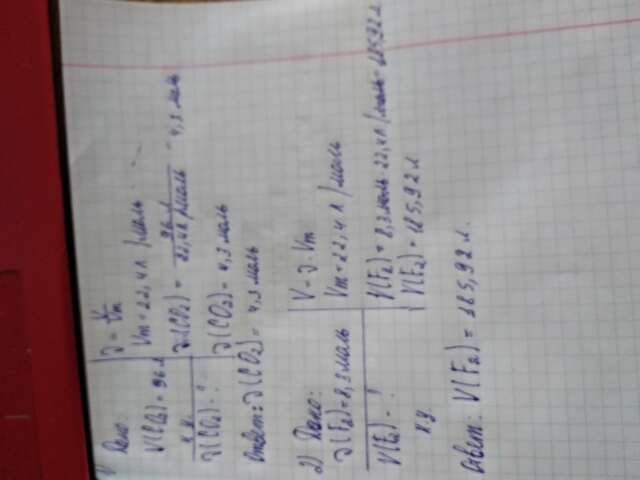 1)
Дано:
V(CO2) = 96 л
н.у.
ν(CO2) - ?
ν = V/Vm
Vm = 22,4 л/моль
ν(CO2) = 96 л / 22,4 л/моль = 4,3 моль
ν(CO2) = 4,3 моль
Ответ: ν(CO2) = 4,3 моль
2) Дано:
ν(F2) = 8,3 моль
V(F2) - ?
н.у.
V = ν · Vm
Vm = 22,4 л/моль
V(F2) = 8,3 моль · 22,4 л/моль = 185,92 л
V(F2) = 185,92 л
Ответ: V(F2) = 185,92 л.